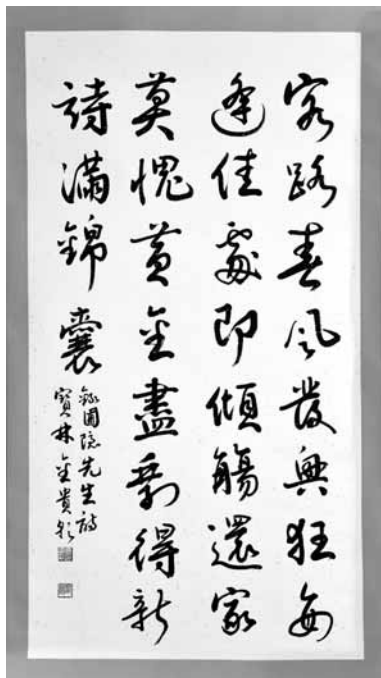 客路春風發興狂每
逢佳處即傾觴還家
莫愧黃金盡剩得新
詩滿錦囊
錄圃隱先生詩
寶林金貴